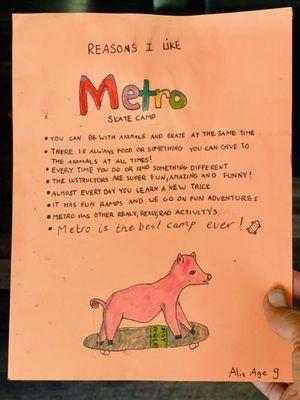 REASONS I LIKE
Metro
SKATE CAMP
• YOU CAN BE WITH ANIMALS AND SKATE AT THE SAME TIME
• THERE IS ALWAYS FOOD OR SOMETHING YOU CAN GIVE TO
THE ANIMALS AT ALL TIMES!
• EVERY TIME YOU DO OR FIND SOMETHING DIFFERENT
• THE INSTRUCTORS ARE SUPER FUN, AMAZING AND FUNNY!
• ALMOST EVERY DAY YOU LEARN A NEW TRICK
• IT HAS FUN RAMPS AND WE GO ON FUN ADVENTURES
• METRO HAS OTHER REALY, REALY, RAD ACTIVITYS.
• Metro is the best camp ever!
PIGY
POWER
Alix Age 9